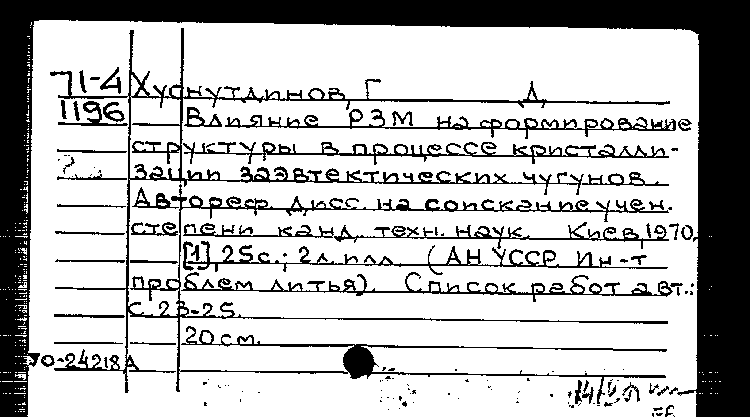 71-4 Хуснутдинов, Г Д.
1196 Влияние РЗМ на формирование
структуры в процессе кристалли-
зации заэвтектических чугунов.
Автореф. дисс. на соискание учен.
степени канд. техн. наук. Киев, 1970.
[1], 25 с.; 2 л. илл. (АН УССР. Ин-т
проблем литья). Список работ авт.:
с. 23-25.
20 см.
70-24218А